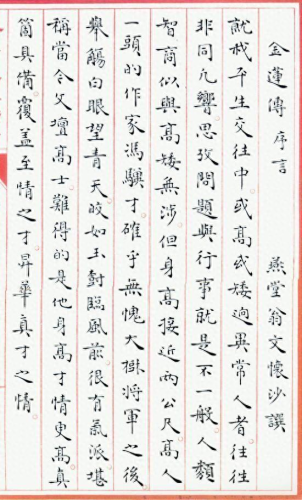 金蓮傳 序言 燕堂翁文懷沙譔
就我平生交往中或高或矮迥異常人者往往
非同凡響思攷問題與行事就是不一般人類
智商似與高矮無涉但身高接近兩公尺高人
一頭的作家馮驥才確乎無愧大樹將軍之後
舉觴白眼望青天皎如玉樹臨風前很有氣派堪
稱當今文壇高士難得的是他身高才情更高真
箇具備覆蓋至情之才昇華真才之情